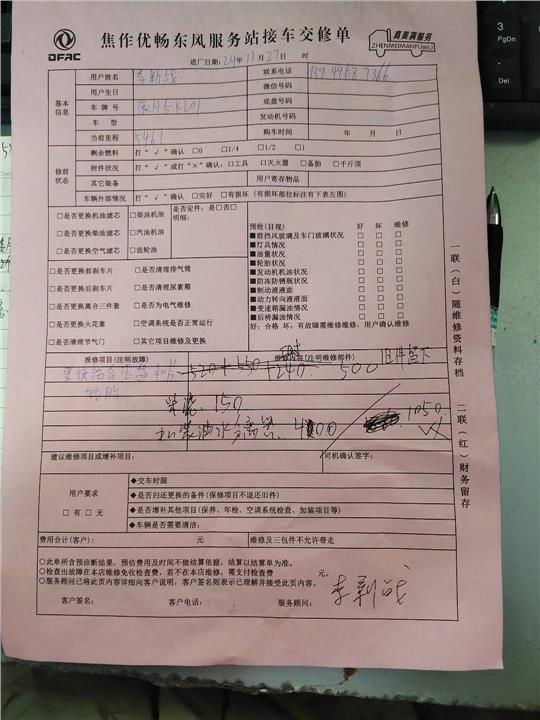 DFAC
焦作优畅东风服务站接车交修单
真美满服务
ZHENMEIMANFUWU
进厂日期: 24年 11月 27日 时
基本信息
用户姓名 李新战 联系电话
用户生日 微信号码
车牌号 底盘号码
车 型 发动机号码
当前里程 5461 购车时间 年 月 日
修前状态
剩余燃料 打“√”确认 □0 □1/4 □1/2 □1
附件状况 打“√”或打“×”确认: □工具 □灭火器 □备胎 □千斤顶
其它装备 用户寄存物品
车辆外部情况 打“√”确认 □完好 □有损坏 (有损坏部位标注有下表左图)
□是否更换机油滤芯 □柴油机油 是否定件: 是□否□
明细:
□是否更换柴油滤芯 □汽油机油
□是否更换空气滤芯 □齿轮油
预检(目视) 好 坏 维修
■前挡风玻璃及车门玻璃状况 □ □ □
■灯具情况 □ □ □
■油量状况 □ □ □
■轮胎状况 □ □ □
■发动机机油状况 □ □ □
■防冻防锈瓶状况 □ □ □
■制动液液面 □ □ □
■动力转向液液面 □ □ □
■变速箱漏油情况 □ □ □
■后桥漏油情况 □ □ □
好: 合格 坏: 有故障需维修维修: 用户确认维修
□是否更换前刹车片 □是否清理排气筒
□是否更换后刹车片 □是否清理尿素箱
□是否更换离合三件套 □是否为电气维修
□是否更换火花塞 □空调系统是否正常运行
□是否清理节气门 □其它项目维修及更换
报修项目(注明故障) 维修内容(注明维修部件)
520+550+240. 500 旧件留下
轮胎.
柴滤. 150
油水分离器. 400 1050.
建议维修项目或增补项目: 司机确认签字:
用户要求
□ 有 □ 无
◆交车时限
◆是否归还更换的备件(保修项目不退还旧件)
◆是否增补其他项目(保养、年检、空调系统检查、加装项目等)
◆车辆是否需要清洁:
费用合计(客户): 元 维修及三包件不允许带走
○此单所含预诊断结果, 预估费用及时间不做结算依据, 结算以结算单为准。
○检查出故障在本店维修免收检查费, 若不在本店维修, 需支付检查费 元。
○服务顾问已将此页内容详细向客户说明, 客户签名则表示已理解并接受此页内容。
客户签名: 客户电话: 服务顾问: 李新战
一联(白)随维修资料存档
二联(红)财务留存